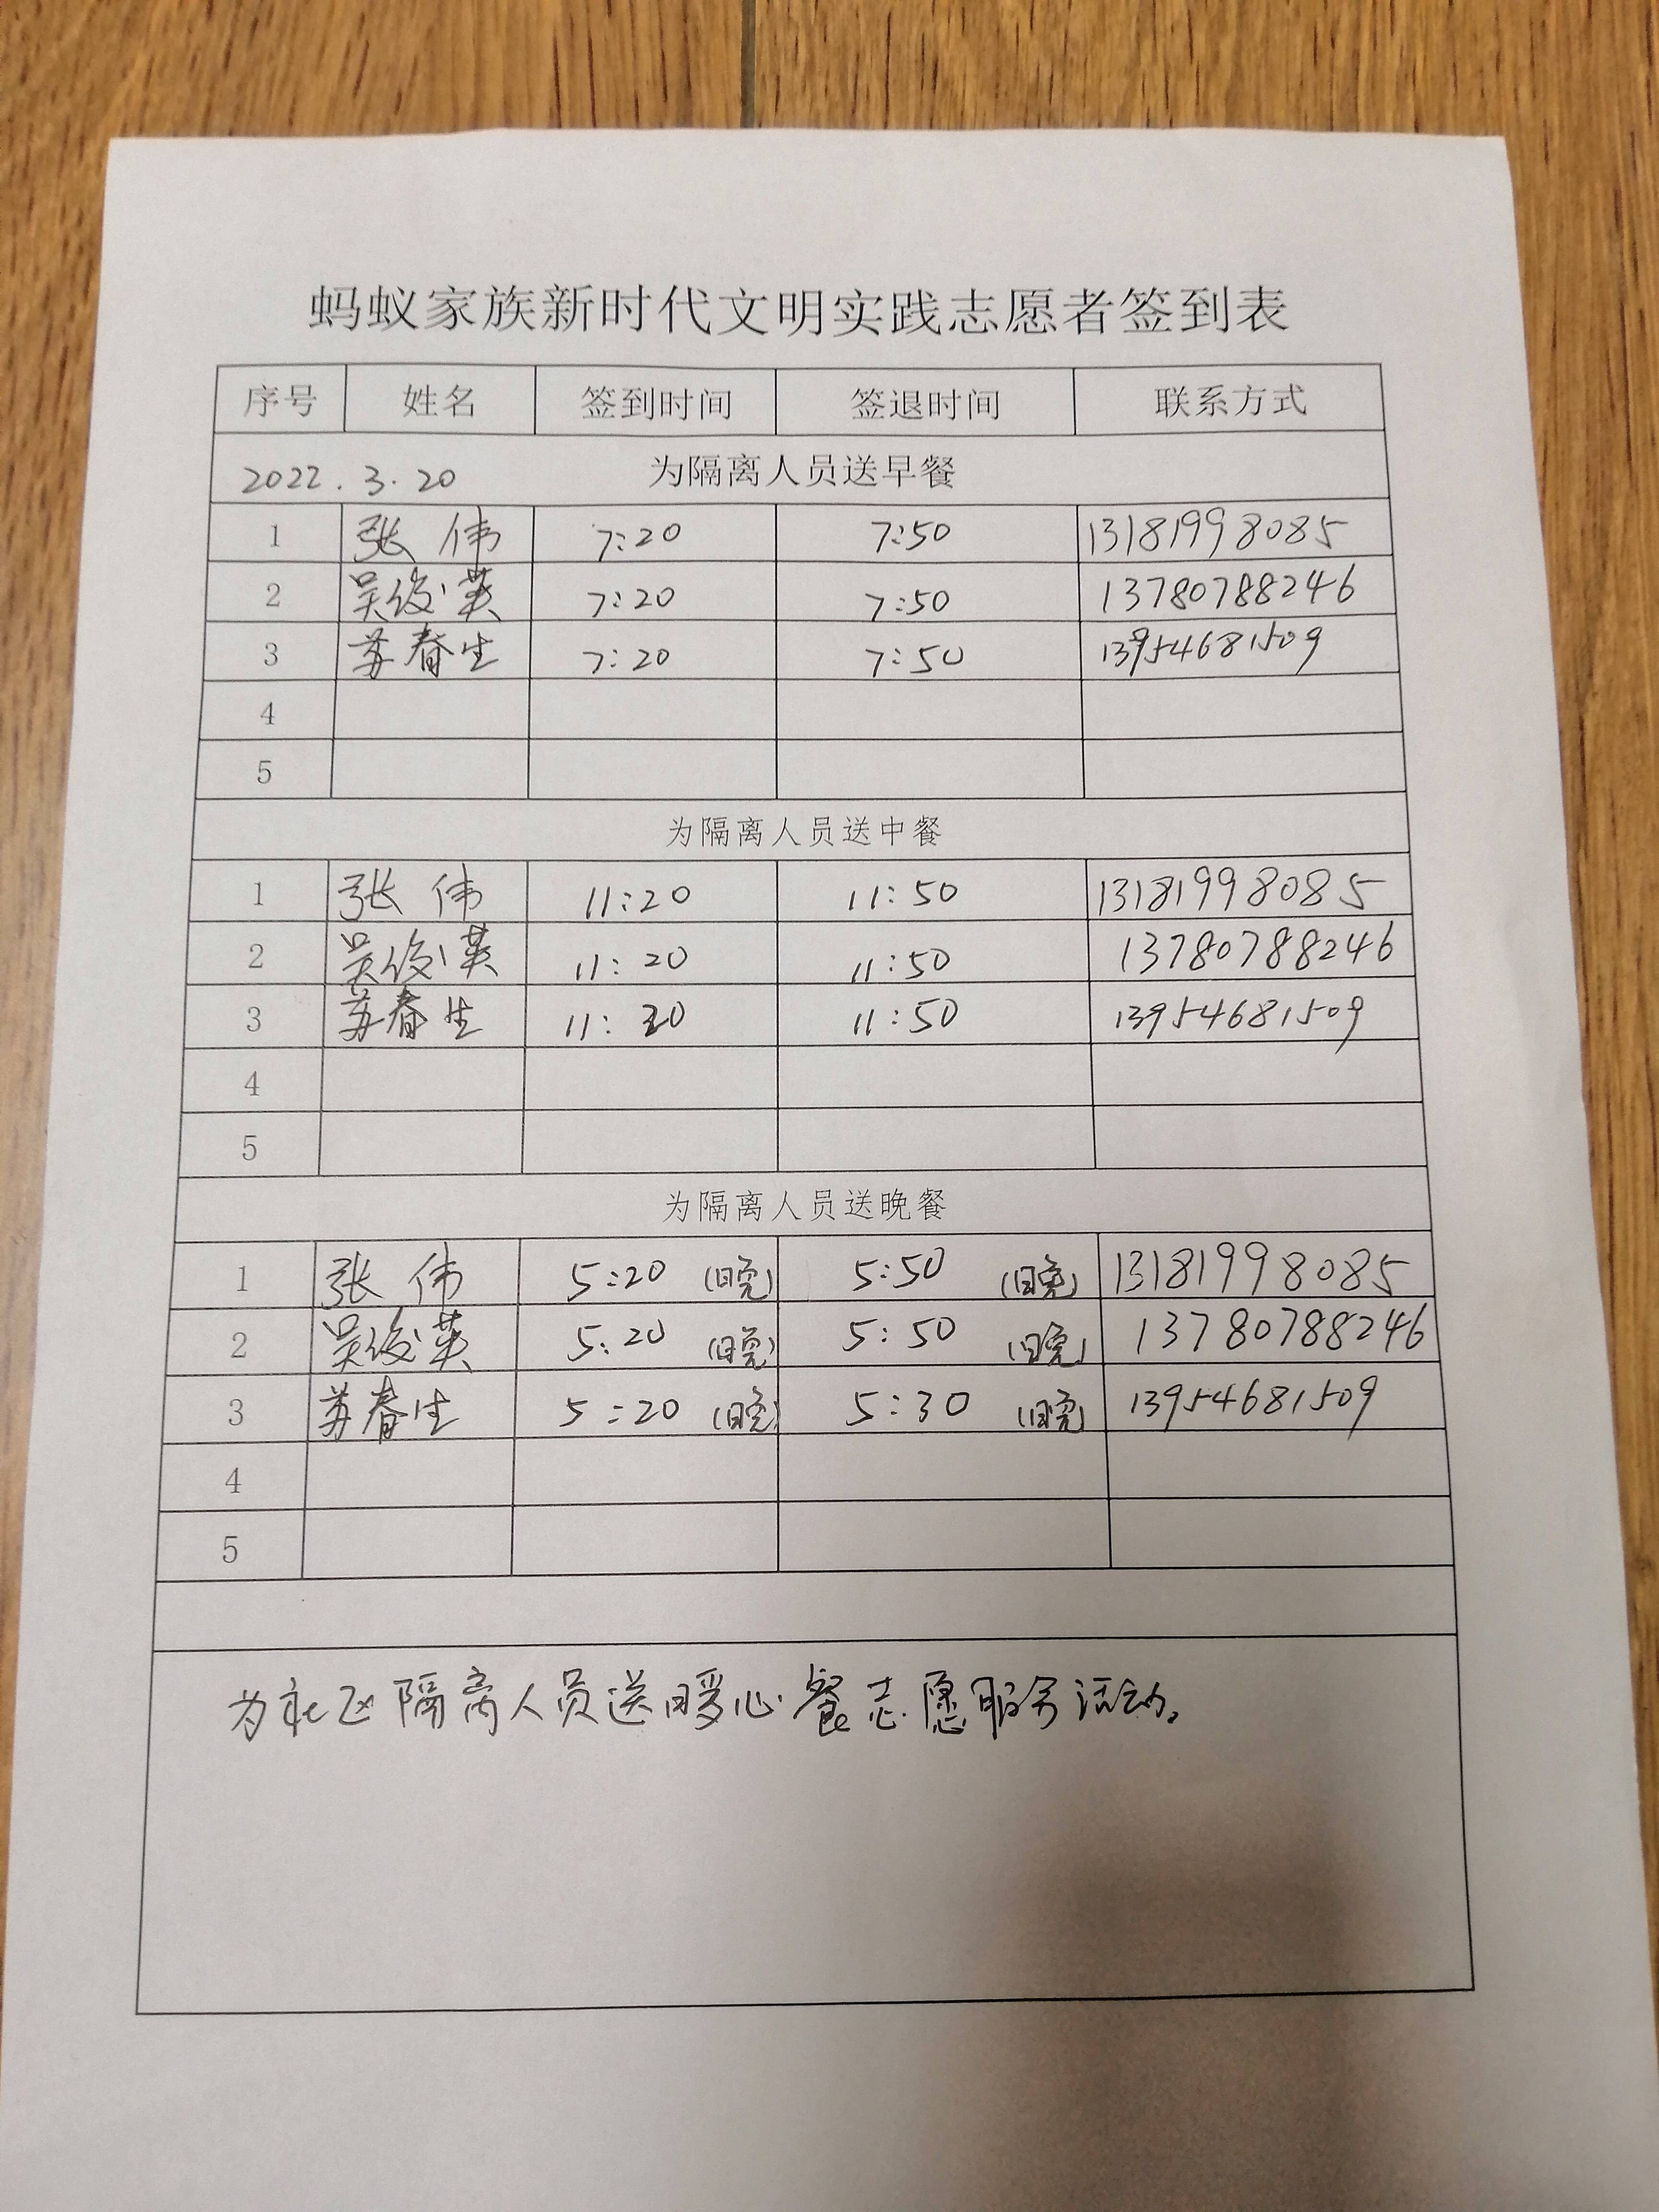 蚂蚁家族新时代文明实践志愿者签到表
序号 姓名 签到时间 签退时间 联系方式
2022.3.20 为隔离人员送早餐
1 张伟 7:20 7:50 13181998085
2 吴俊英 7:20 7:50 13780788246
3 苏春生 7:20 7:50 13954681509
4
5
为隔离人员送中餐
1 张伟 11:20 11:50 13181998085
2 吴俊英 11:20 11:50 13780788246
3 苏春生 11:20 11:50 13954681509
4
5
为隔离人员送晚餐
1 张伟 5:20 (晚) 5:50 (晚) 13181998085
2 吴俊英 5:20 (晚) 5:50 (晚) 13780788246
3 苏春生 5:20 (晚) 5:30 (晚) 13954681509
4
5
为社区隔离人员送暖心餐志愿服务活动。